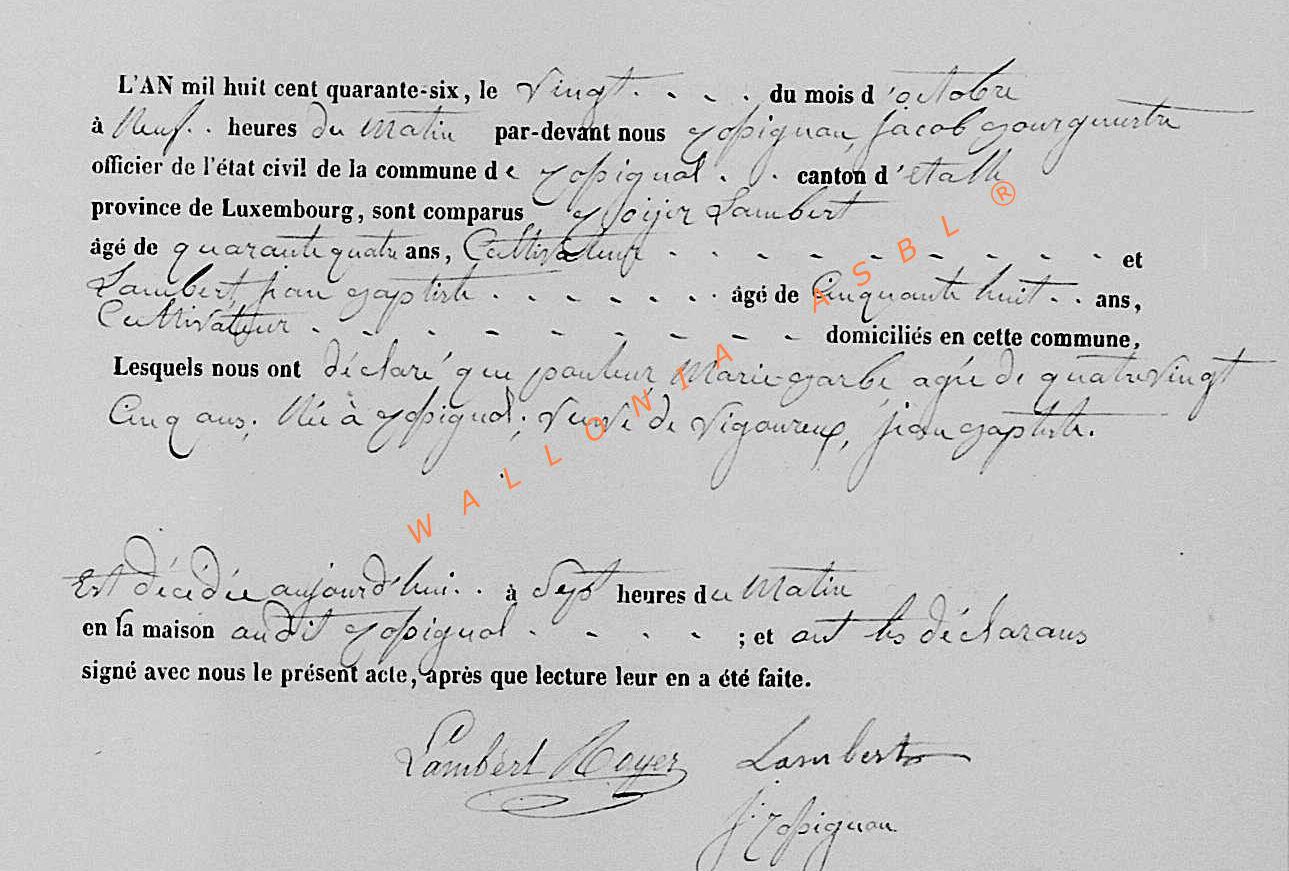 L'AN mil huit cent quarante-six, le vingt . - - . du mois d'octobre
à Neuf . . heures du Matin par-devant nous Rossignon, jacob Bourguestre
officier de l'état civil de la commune de Rossignol . . canton d'etalle
province de Luxembourg, sont comparus Roijer Lambert
âgé de quarante quatre ans, Cultivateur . - - - - - - - - et
Lambert jean Baptiste . . . . . . . âgé de Cinquante huit . . ans,
Cultivateur . - - - - - - - - domiciliés en cette commune,
Lesquels nous ont déclaré que Marie Barbe, agée de quatre vingt
Cinq ans, Née à Rossignol, veuve de Vigoureux, jean Baptiste.
Est décédée aujourd'hui . . à Sept heures du Matin
en sa maison audit Rossignol . - - - ; et ont les déclarans
signé avec nous le présent acte, après que lecture leur en a été faite.
Lambert Royer Lambert
J Rossignon
WALLONIA ASBL ®